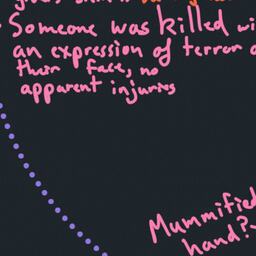 Someone was killed wi
an expression of terror o
their face, no
apparent injuries
Mummified
hand?